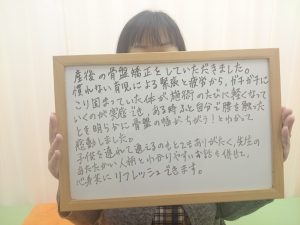 産後の骨盤矯正をしていただきました。
慣れない育児による緊張と疲労から、ガチガチに
こり固まっていた体が施術のたびに軽くなって
いくのが実感でき、ある時ふと自分で腰を触った
とき明らかに骨盤の幅がちがう！とわかって
感動しました。
子供を連れて通えるのもとてもありがたく、先生の
あたたかい人柄とわかりやすいお話も併せて、
心身共にリフレッシュできます。